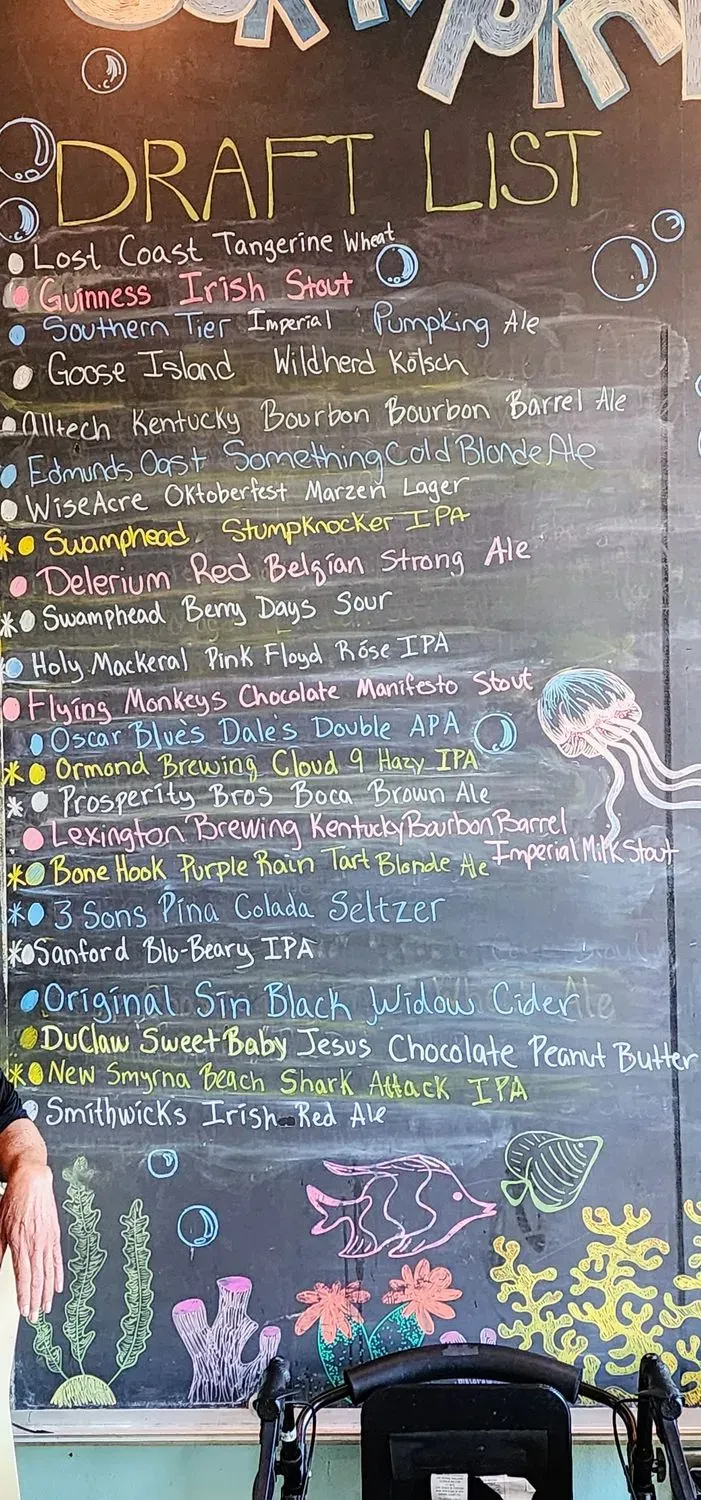 DRAFT LIST
Lost Coast Tangerine Wheat
Guinness Irish Stout
Southern Tier Imperial Pumpking Ale
Goose Island Wildherd Kölsch
Alltech Kentucky Bourbon Bourbon Barrel Ale
Edmunds Oast Something Cold Blonde Ale
WiseAcre Oktoberfest Marzen Lager
* Swamphead Stumpknocker IPA
Delerium Red Belgian Strong Ale
* Swamphead Berry Days Sour
Holy Mackeral Pink Floyd Róse IPA
Flying Monkeys Chocolate Manifesto Stout
Oscar Blue's Dale's Double APA
* Ormond Brewing Cloud 9 Hazy IPA
* Prosperity Bros Boca Brown Ale
Lexington Brewing Kentucky Bourbon Barrel
Imperial Milk Stout
* Bone Hook Purple Rain Tart Blonde Ale
* 3 Sons Pina Colada Seltzer
* Sanford Blu-Beary IPA
Original Sin Black Widow Cider
DuClaw Sweet Baby Jesus Chocolate Peanut Butter
* New Smyrna Beach Shark Attack IPA
Smithwicks Irish Red Ale